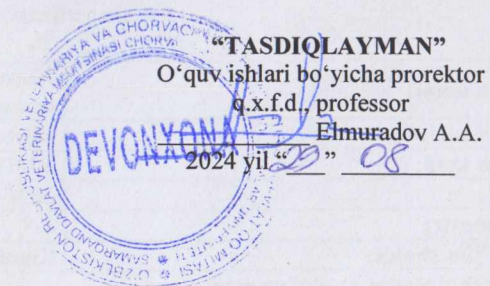 “TASDIQLAYMAN”
O‘quv ishlari bo‘yicha prorektor
q.x.f.d., professor
Elmuradov A.A.
2024 yil “29” 08
DEVONXONA